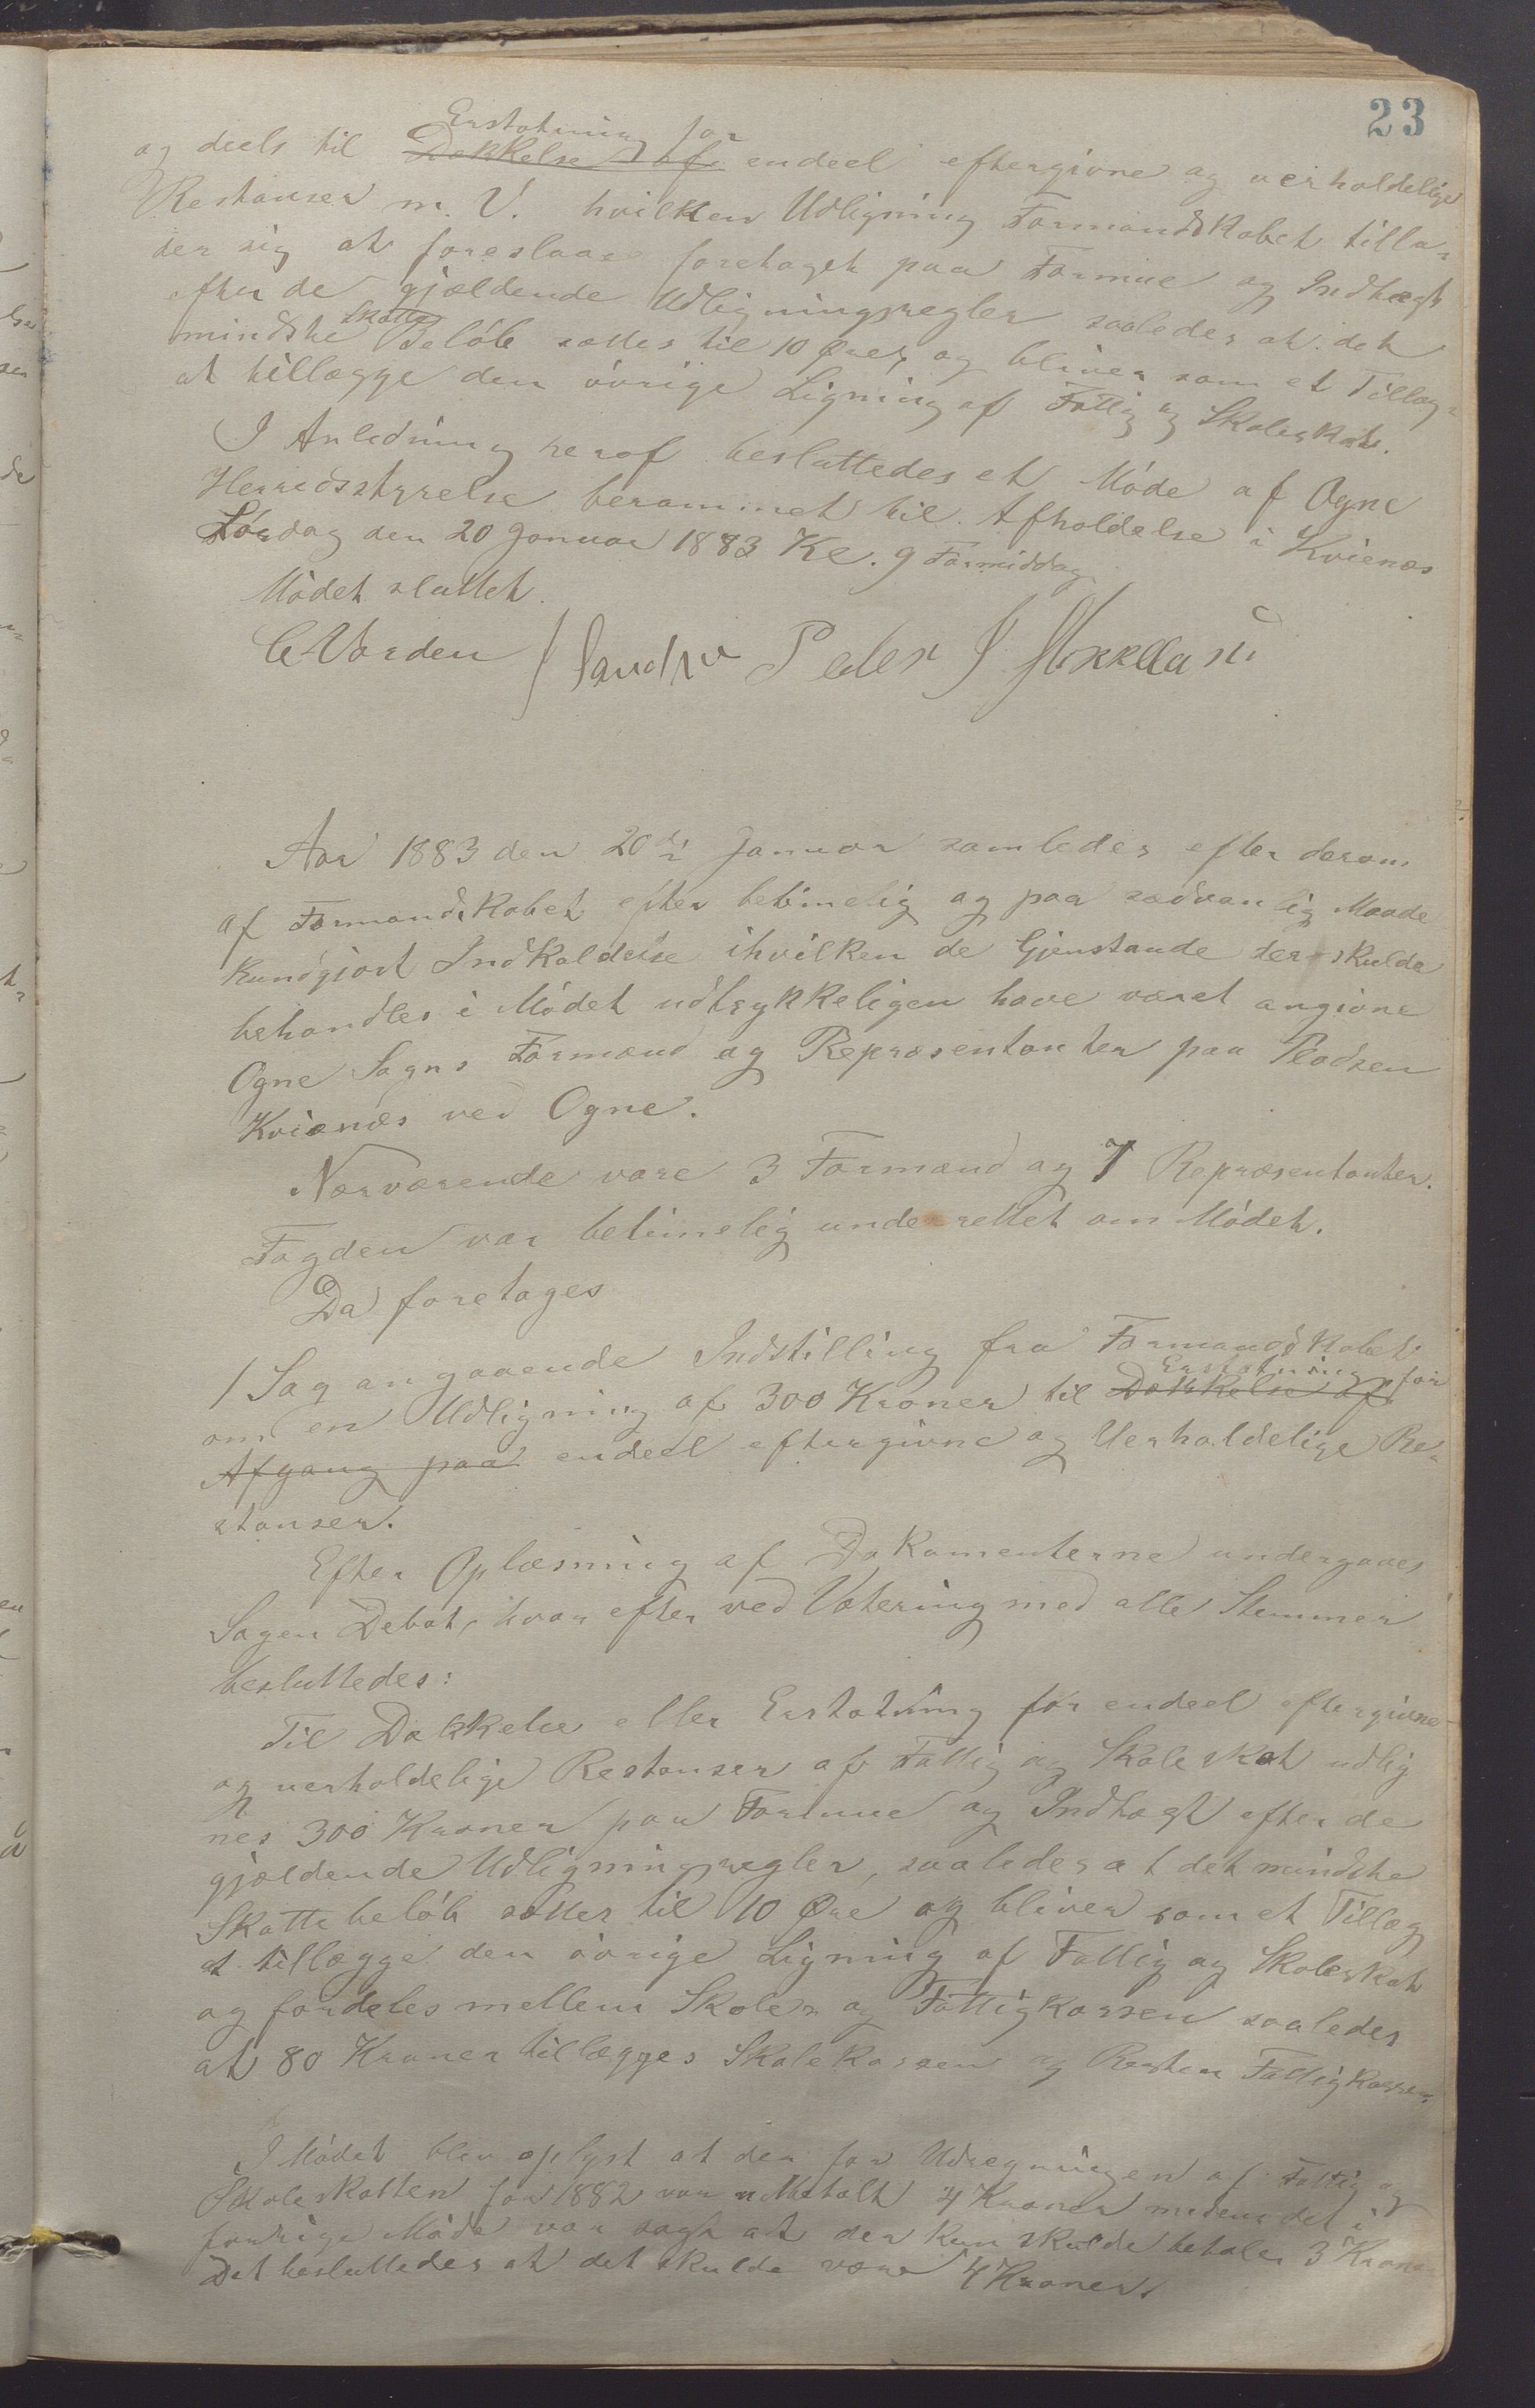 23
Erstatning for
og deels til Dækkelse af endeel eftergivne og uerholdelige
Restanser m. V. hvilken Udligning Formandskabet tilla-
der sig at foreslaae foretaget paa Formue og Indtægt
efter de gjældende Udligningsregler saaledes at det
mindste Skatte Beløb sættes til 10 Øre, og bliver som et Tillæg
at tillægge den øvrige Ligning af Fattig og Skoleskat.
I Anledning heraf besluttedes et Møde af Ogne
Herredsstyrelse berammet til Afholdelse i Kviænæs
Lørdag den 20 Januar 1883 Kl. 9 Formiddag.
Mødet sluttet.
C Varden Peder I
Aar 1883 den 20de Januar samledes efter derom
af Formandskabet efter betimelig og paa sædvanlig Maade
kundgjort Indkaldelse ihvilken de Gjenstande der skulde
behandles i Mødet udtrykkeligen have været angivne
Ogne Sogns Formænd og Repræsentanter paa Pladsen
Kviænæs ved Ogne.
Nærværende vare 3 Formænd og 7 Repræsentanter.
Fogden var betimelig underrettet om Mødet.
Da foretages
1 Sag angaaende Indstilling fra Formandskabet
om en Udligning af 300 Kroner til Dækkelse af Erstatning for
Afgang paa endeel eftergivne og Uerholdelige Re-
stanser.
Efter Oplæsning af Dokumenterne undergaves
Sagen Debat, hvorefter ved Votering med alle Stemmer
besluttedes:
Til Dækkelse eller Erstatning for endeel eftergivne
og uerholdelige Restanser af Fattig og Skoleskat udlig
nes 300 Kroner paa Formue og Indtægt efter de
gjældende Udligningsregler, saaledes at det mindste
Skattebeløb sættes til 10 Øre og bliver som et Tillæg
at tillægge den øvrige Ligning af Fattig og Skoleskat
og fordeles mellem Skole- og Fattigkassen saaledes
at 80 Kroner tillægges Skolekassen og Resten Fattigkassen.
I Mødet blev oplyst at der for Udregningen af Fattig og
Skoleskatten for 1882 var udbetalt 4 Kroner medens det i
forrige Møde var sagt at der kun skulde betales 3 Kroner
Det besluttedes at det skulde være 4 Kroner.